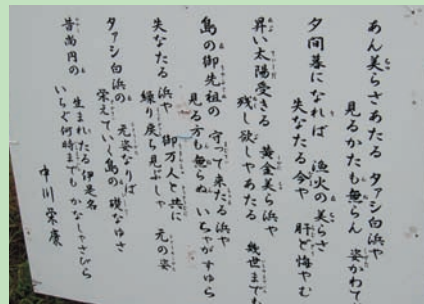 あん美らさあたる タァシ白浜や
見るかたも無らん 姿かわて
夕間暮になれば 漁火の美らさ
失なたる今や 肝ど悔やむ
昇い太陽受きる 黄金美ら浜や
残し欲しゃあたる 幾世までも
島の御先祖の 守って来たる浜や
見る方も無らぬ いちゃがすゆら
失なたる 浜や 御万人と共に
繰り戻ち見ぶしゃ 元の姿
タァシ白浜の 元姿なりば
栄えていく島の 礎なゆさ
昔尚円の 生まれたる伊是名
いちぐ何時までも かなしゃさびら
中川 栄康